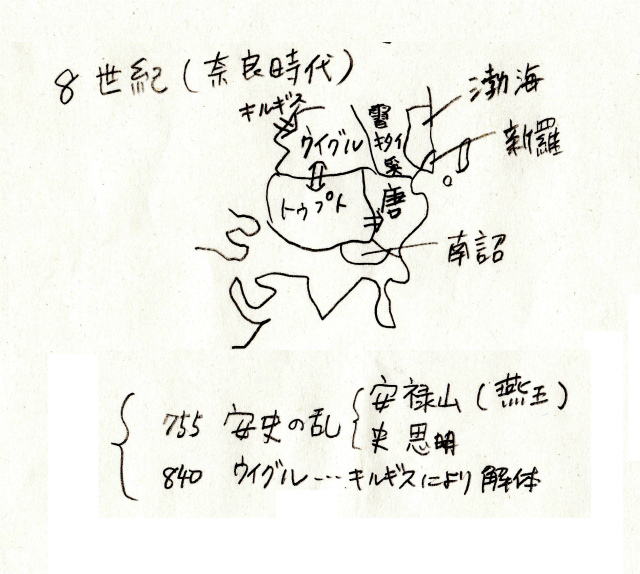 8世紀(奈良時代)
キルギス
渤海
霫
ウイグル
キタイ
新羅
奚
トゥプト
唐
南詔
755 安史の乱 安禄山(燕王)
史思明
840 ウイグル…キルギスにより解体